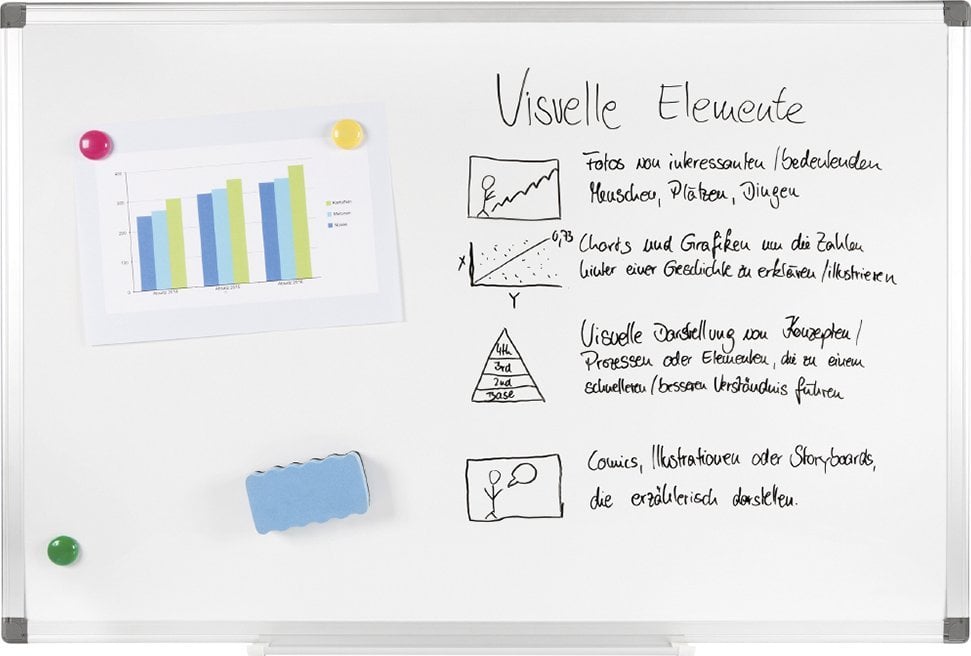 Visuelle Elemente
Fotos von interessanten / bedeutenden
Menschen, Plätzen, Dingen
0,73
X
Y
Charts und Grafiken um die Zahlen
hinter einer Geschichte zu erklären / illustrieren
4th
3rd
2nd
Base
Visuelle Darstellung von Konzepten /
Prozessen oder Elementen, die zu einem
schnelleren / besseren Verständnis führen
Comics, Illustrationen oder Storyboards,
die erzählerisch darstellen.
400
300
200
100
0
Kartoffeln
Melonen